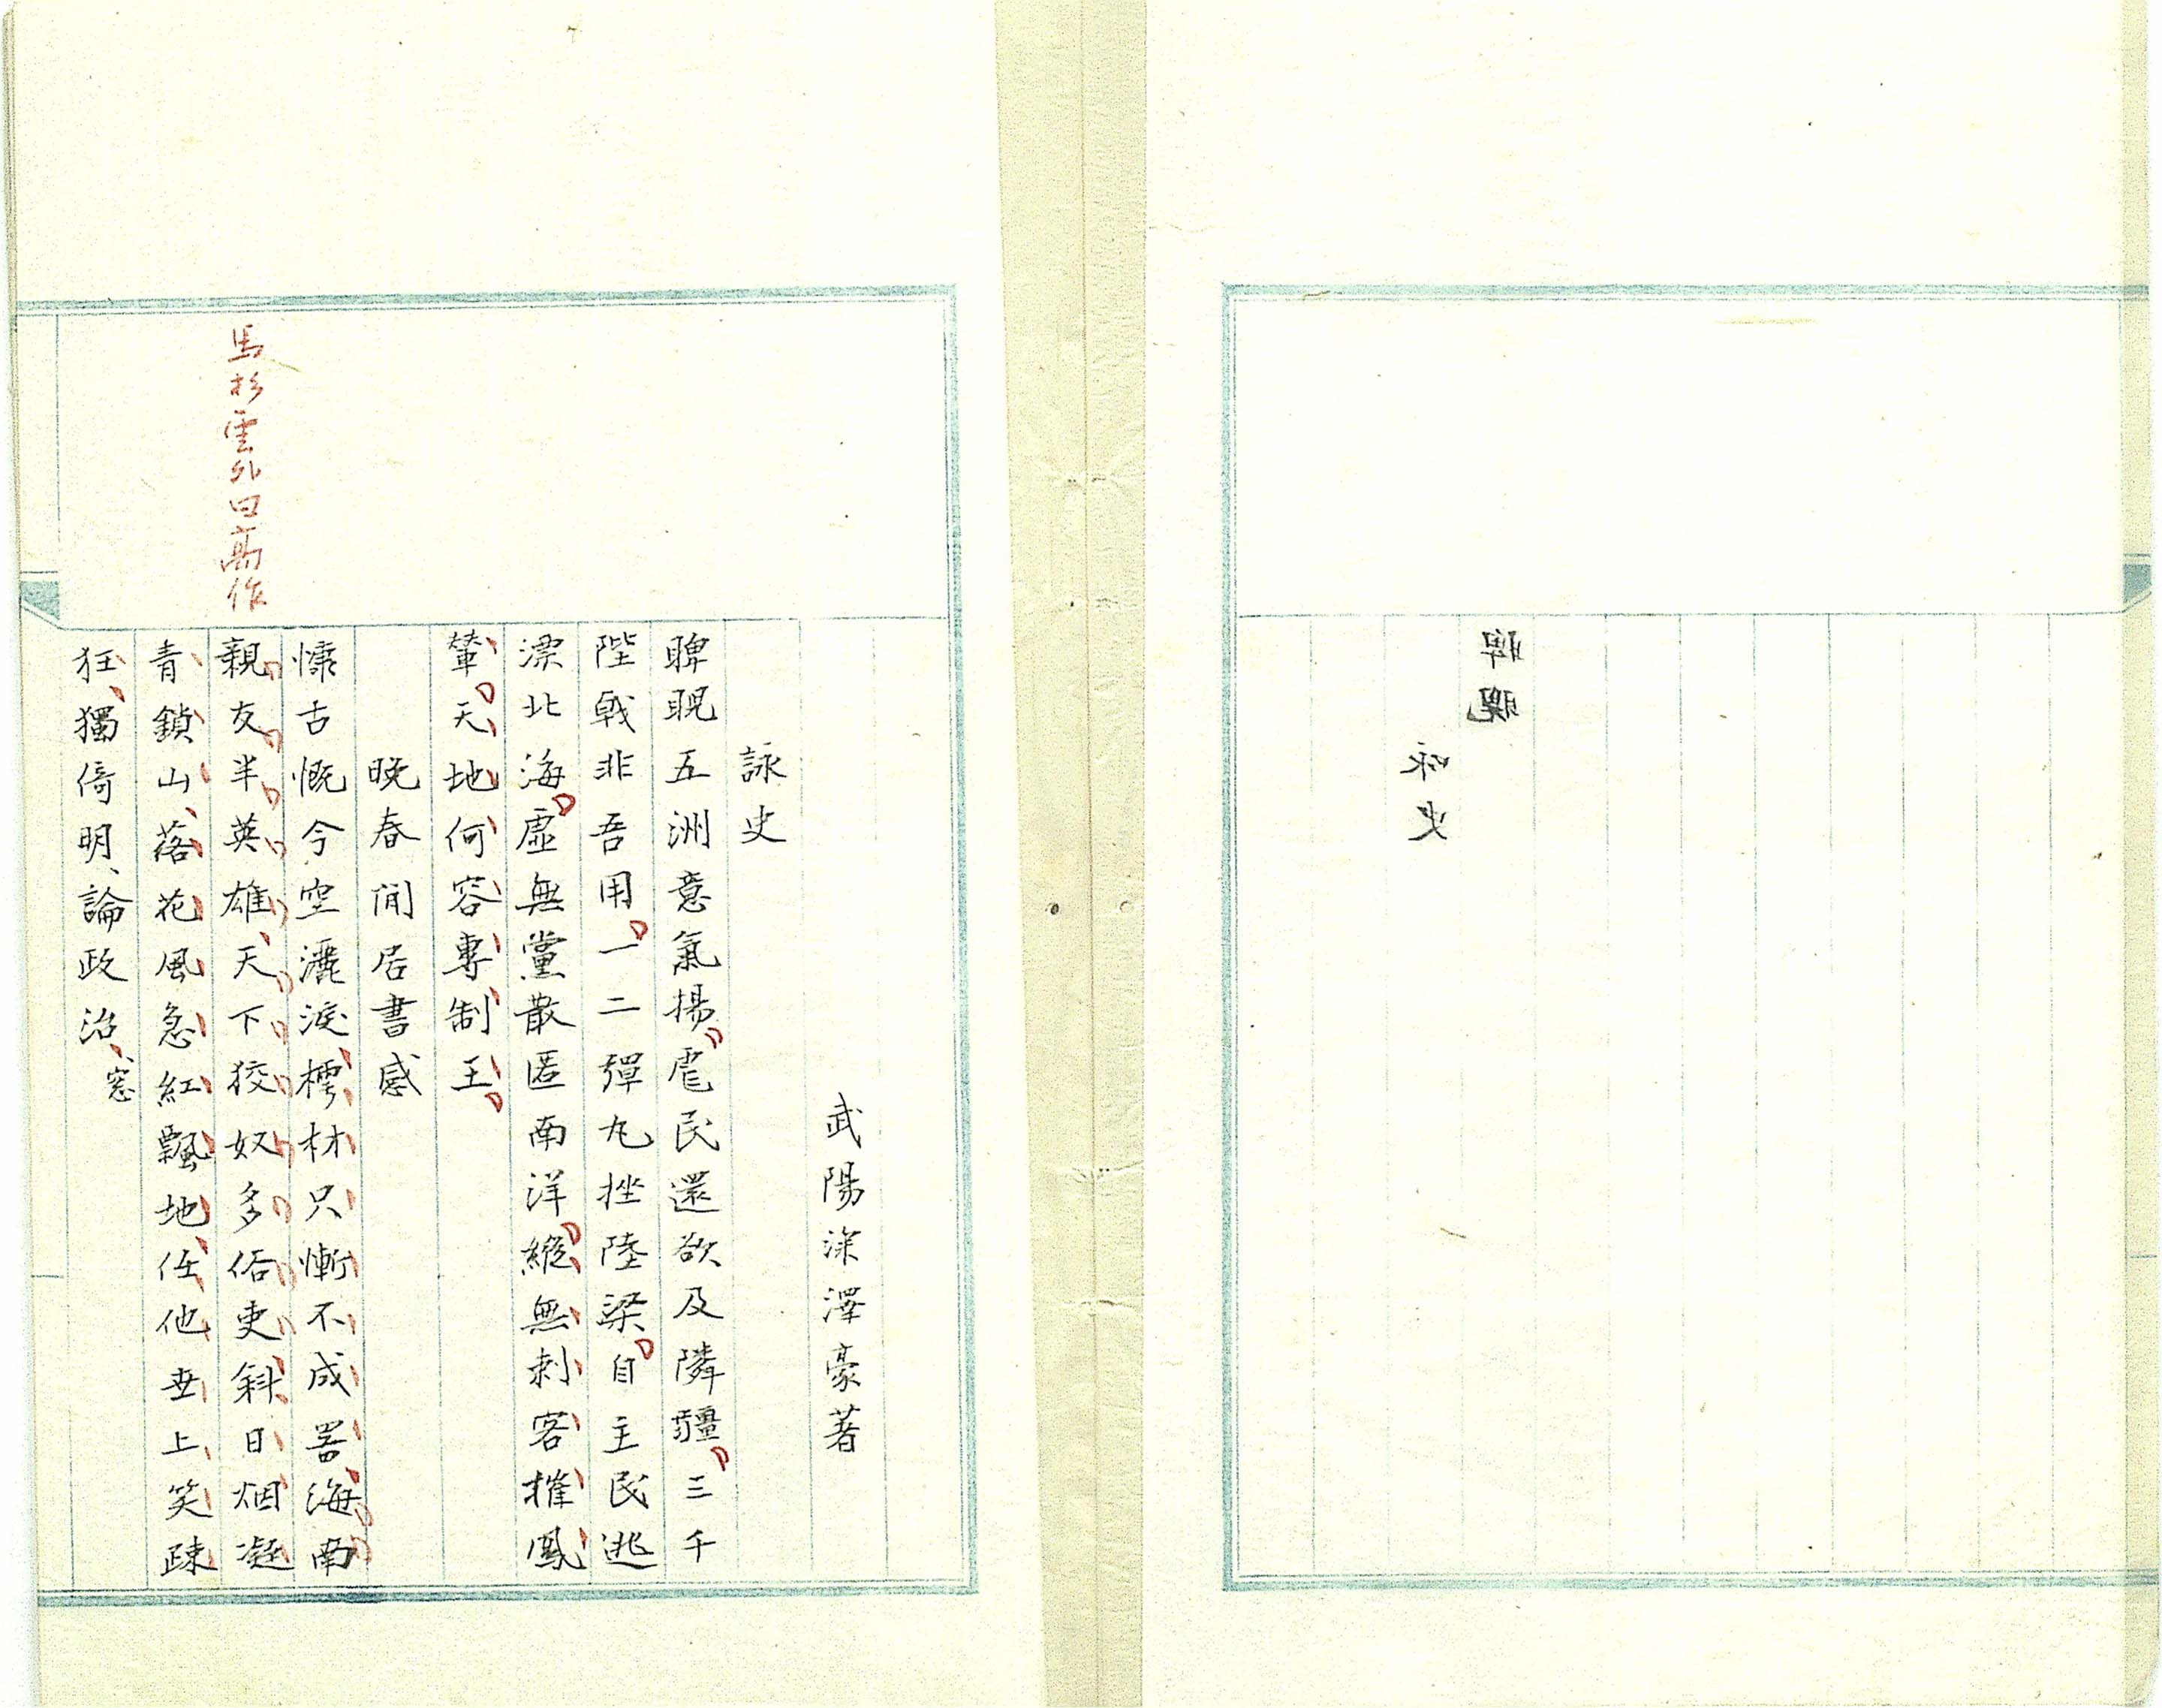 武陽深澤豪著
詠史
睥睨五洲意氣揚虐民還欲及隣疆三千
陛戟非吾用一二彈丸挫陸梁自主民逃
深北海虛無黨散匿南洋縱無刺客摧鳳
輦天地何容專制王
晚春間居書感
慷古慨今空灑淚樗材只慚不成器海南
親友半英雄天下狡奴多俗吏斜日烟凝
青鎖山落花風急紅飄地任他世上笑疎
狂獨倚明窓論政治
馬杉雲外曰高作